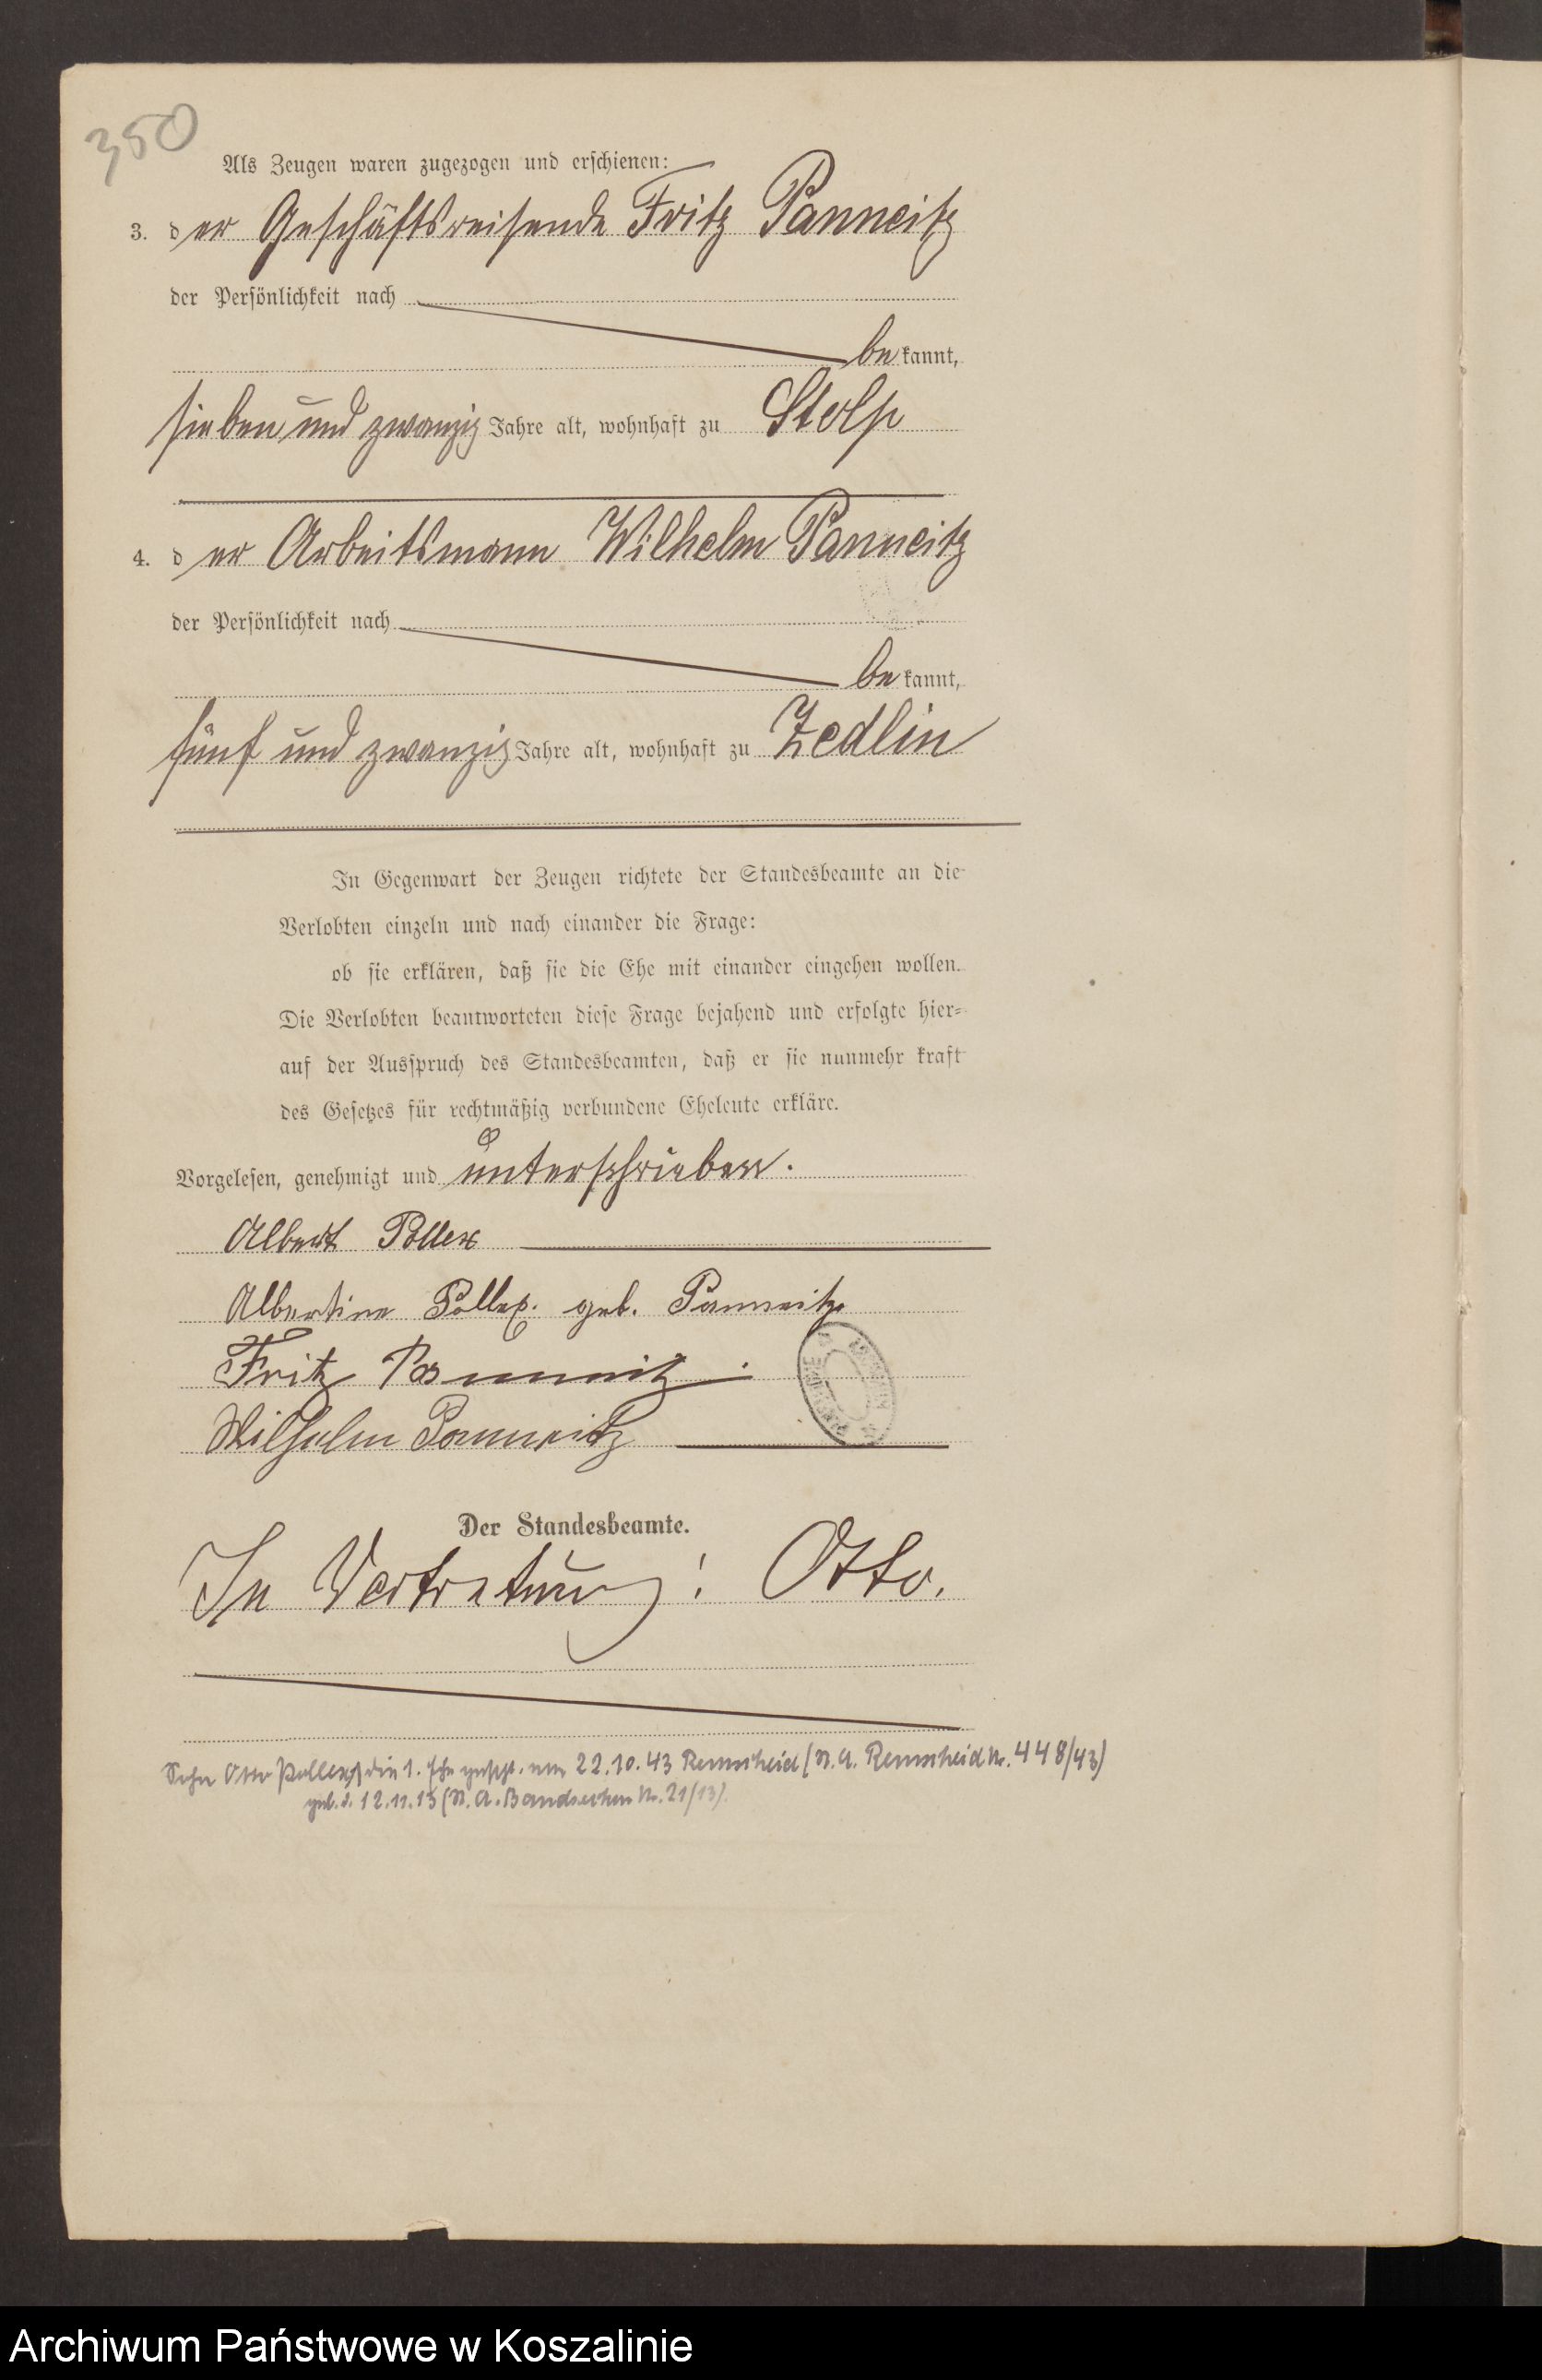 350
Als Zeugen waren zugezogen und erschienen:
3. der Geschäftsreisende Fritz Panneitz
der Persönlichkeit nach
bekannt,
sieben und zwanzig Jahre alt, wohnhaft zu Stolp
4. der Arbeitsmann Wilhelm Panneitz
der Persönlichkeit nach
bekannt,
fünf und zwanzig Jahre alt, wohnhaft zu Zedlin
In Gegenwart der Zeugen richtete der Standesbeamte an die
Verlobten einzeln und nach einander die Frage:
ob sie erklären, daß sie die Ehe mit einander eingehen wollen.
Die Verlobten beantworteten diese Frage bejahend und erfolgte hier-
auf der Ausspruch des Standesbeamten, daß er sie nunmehr kraft
des Gesetzes für rechtmäßig verbundene Eheleute erkläre.
Vorgelesen, genehmigt und unterschrieben.
Albert Pollex
Albertine Pollex. geb. Panneitz
Fritz Panneitz.
Wilhelm Panneitz
Der Standesbeamte.
In Vertretung: Otto.
Sohn Otto Pollex die 1. Ehe 22.10.43 Remscheid Remscheid Nr. 448/43)
geb. 12.11.13 Nr. 21/13).
Archiwum Państwowe w Koszalinie